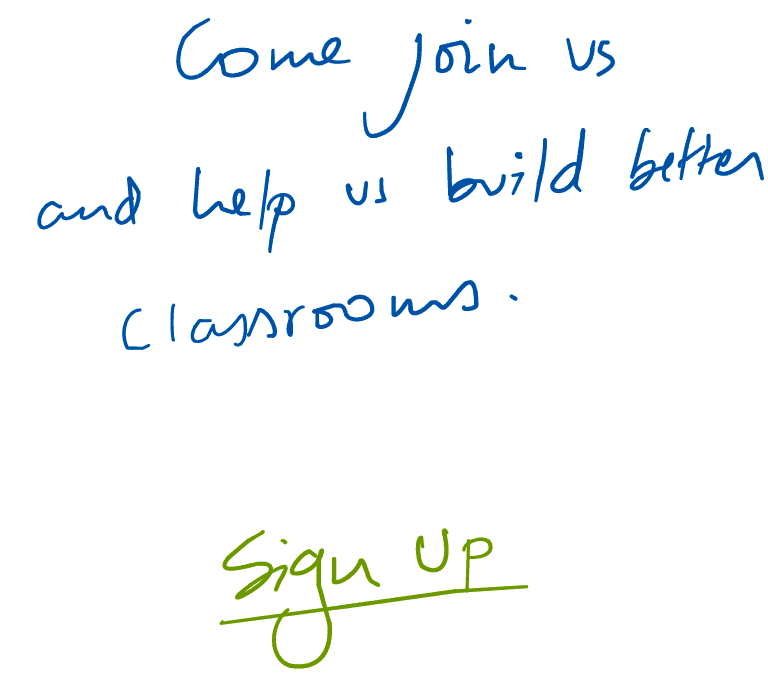 Come join us
and help us build better
classrooms.
Sign Up